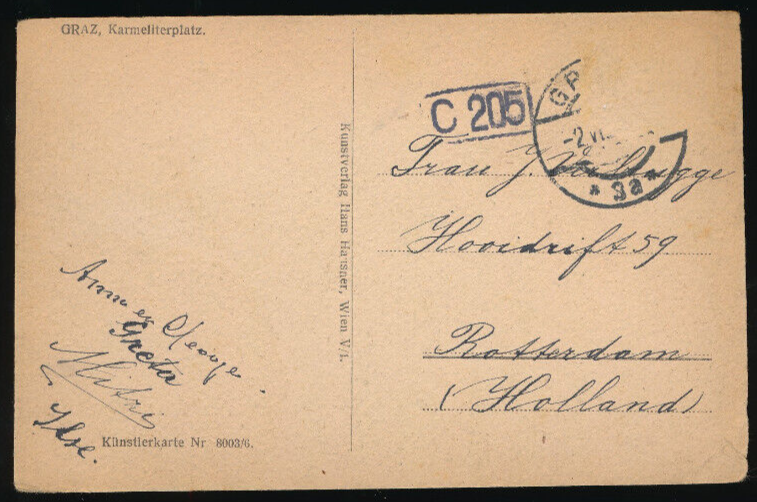 GRAZ, Karmeliterplatz.
C 205
GR
-2.VI
* 3a
Frau J.
Hooidrift 59
Rotterdam
(Holland)
Kunstverlag Hans Hausner, Wien V/1.
George
Greta
Mitzi
Ilse.
Künstlerkarte Nr 8003/6.